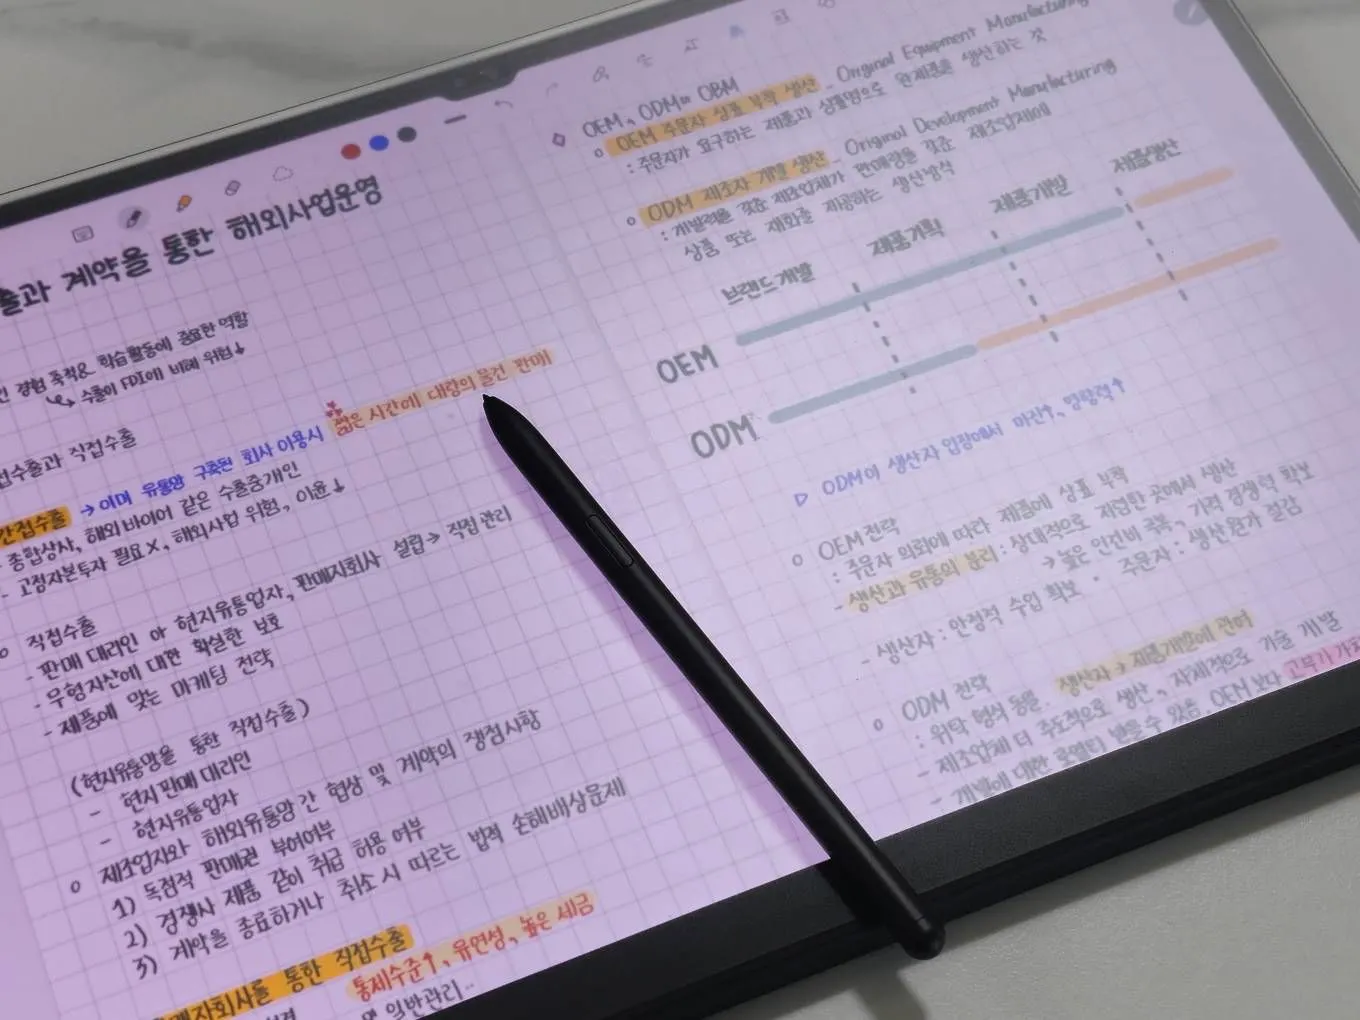 출과 계약을 통한 해외사업운영
경험 축적& 학습활동에 중요한 역할
↳ 수출이 FDI에 비해 위험↓
접수출과 직접수출
간접수출 → 이미 유통망 구축된 회사 이용시 짧은 시간에 대량의 물건 판매!
- 종합상사, 해외 바이어 같은 수출중개인
- 고정자본투자 필요 X, 해외사업 위험, 이윤↓
○ 직접수출
- 판매 대리인 or 현지유통업자, 판매자회사 설립 → 직접 관리
- 무형자산에 대한 확실한 보호
- 제품에 맞는 마케팅 전략
(현지유통망을 통한 직접수출)
- 현지 판매 대리인
- 현지유통업자
○ 제조업자와 해외유통망 간 협상 및 계약의 쟁점사항
1) 독점적 판매권 부여여부
2) 경쟁사 제품 같이 취급 허용 여부
3) 계약을 종료하거나 취소 시 따르는 법적 손해배상문제
판매자회사를 통한 직접수출
통제수준↑, 유연성, 높은 세금
및 일반관리..
OEM, ODM과 OBM
○ OEM 주문자 상표 부착 생산 - Original Equipment Manufacturing
: 주문자가 요구하는 제품과 상표명으로 완제품을 생산하는 것
○ ODM 제조자 개발 생산 - Original Development Manufacturing
: 개발력을 갖춘 제조업체가 판매망을 갖춘 제조업체에
상품 또는 재화를 제공하는 생산방식
브랜드 개발 제품기획 제품개발 제품생산
OEM
ODM
▷ ODM이 생산자 입장에서 마진↑, 영향력↑
○ OEM 전략
: 주문자 의뢰에 따라 제품에 상표 부착
- 생산과 유통의 분리 : 상대적으로 저렴한 곳에서 생산
→ 높은 인건비 극복, 가격 경쟁력 확보
- 생산자 : 안정적 수입 확보 · 주문자 : 생산원가 절감
○ ODM 전략
: 위탁 형식 동일. 생산자 → 제품개발에 관여
- 제조업체 더 주도적으로 생산, 자체적으로 기술 개발
- 개발에 대한 로열티 받을 수 있음. OEM보다 고부가가치